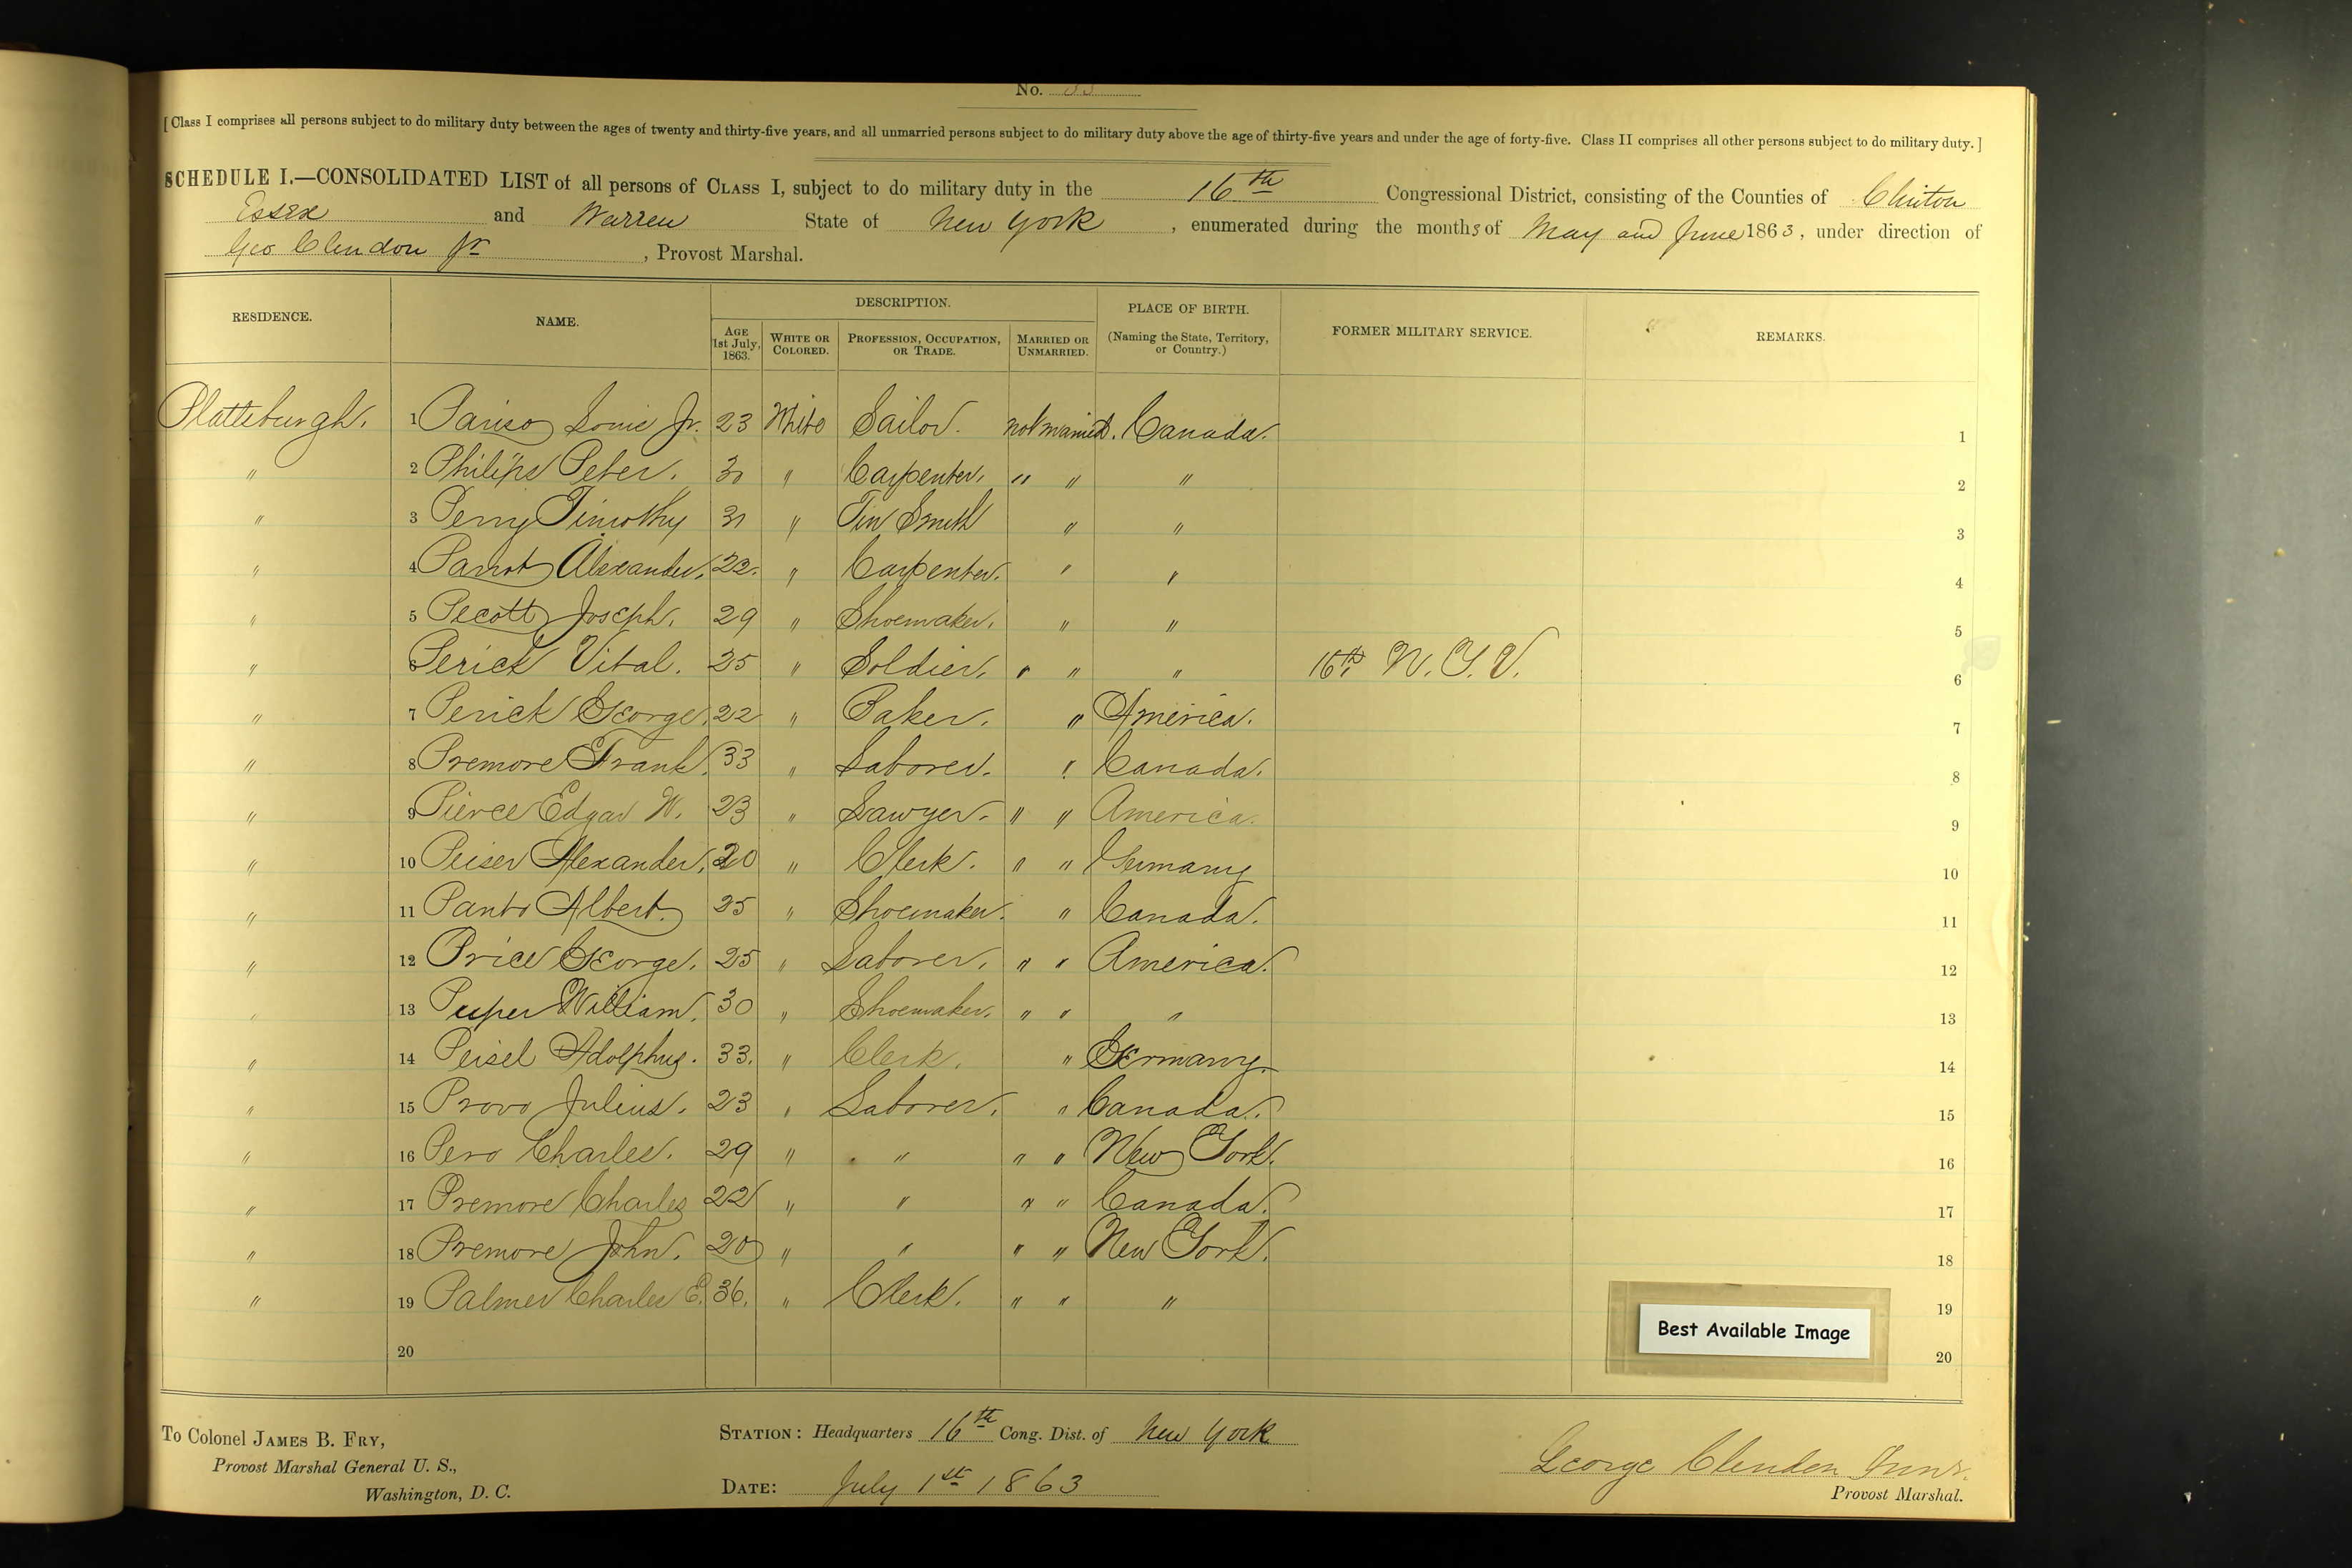 No. 33
[Class I comprises all persons subject to do military duty between the ages of twenty and thirty-five years, and all unmarried persons subject to do military duty above the age of thirty-five years and under the age of forty-five. Class II comprises all other persons subject to do military duty.]
SCHEDULE I.—CONSOLIDATED LIST of all persons of CLASS I, subject to do military duty in the 16th Congressional District, consisting of the Counties of Clinton
Essex and Warren State of New York, enumerated during the months of May and June 1863, under direction of
Geo Clendon Jr, Provost Marshal.
RESIDENCE. NAME. DESCRIPTION. PLACE OF BIRTH. (Naming the State, Territory, or Country.) FORMER MILITARY SERVICE. REMARKS.
AGE 1st July, 1863. WHITE OR COLORED. PROFESSION, OCCUPATION, OR TRADE. MARRIED OR UNMARRIED.
Plattsburgh. 1 Pariso Jr. 23 White Sailor. not married. Canada. 1
" 2 Philips Peter. 30 " Carpenter. " " " 2
" 3 Perry Timothy 31 " Tin Smith " " 3
" 4 Parrot Alexander. 22. " Carpenter. " " 4
" 5 Pecott Joseph. 29 " Shoemaker. " " 5
" 6 Perick Vital. 25 " Soldier. " " " 16th N.Y.V. 6
" 7 Perick George. 22 " Baker. " America. 7
" 8 Premore Frank. 33 " Laborer. " Canada. 8
" 9 Pierce Edgar W. 23 " Sawyer. " " America. 9
" 10 Peiser Alexander. 20 " Clerk. " " Germany 10
" 11 Panto Albert. 25 " Shoemaker. " Canada. 11
" 12 Price George. 25 " Laborer. " " America. 12
" 13 William. 30 " Shoemaker. " " " 13
" 14 Peisel Adolphus. 33. " Clerk. " Germany. 14
" 15 Provo Julius. 23 " Laborer. " Canada. 15
" 16 Pero Charles. 29 " " " " New York. 16
" 17 Premore Charles 22 " " " " Canada. 17
" 18 Premore John. 20 " " " " New York. 18
" 19 Palmer Charles E. 36. " Clerk. " " " 19
20 20
Best Available Image
To Colonel JAMES B. FRY,
Provost Marshal General U. S.,
Washington, D. C.
STATION: Headquarters 16th Cong. Dist. of New York
DATE: July 1st 1863
George Clendon Junr.
Provost Marshal.